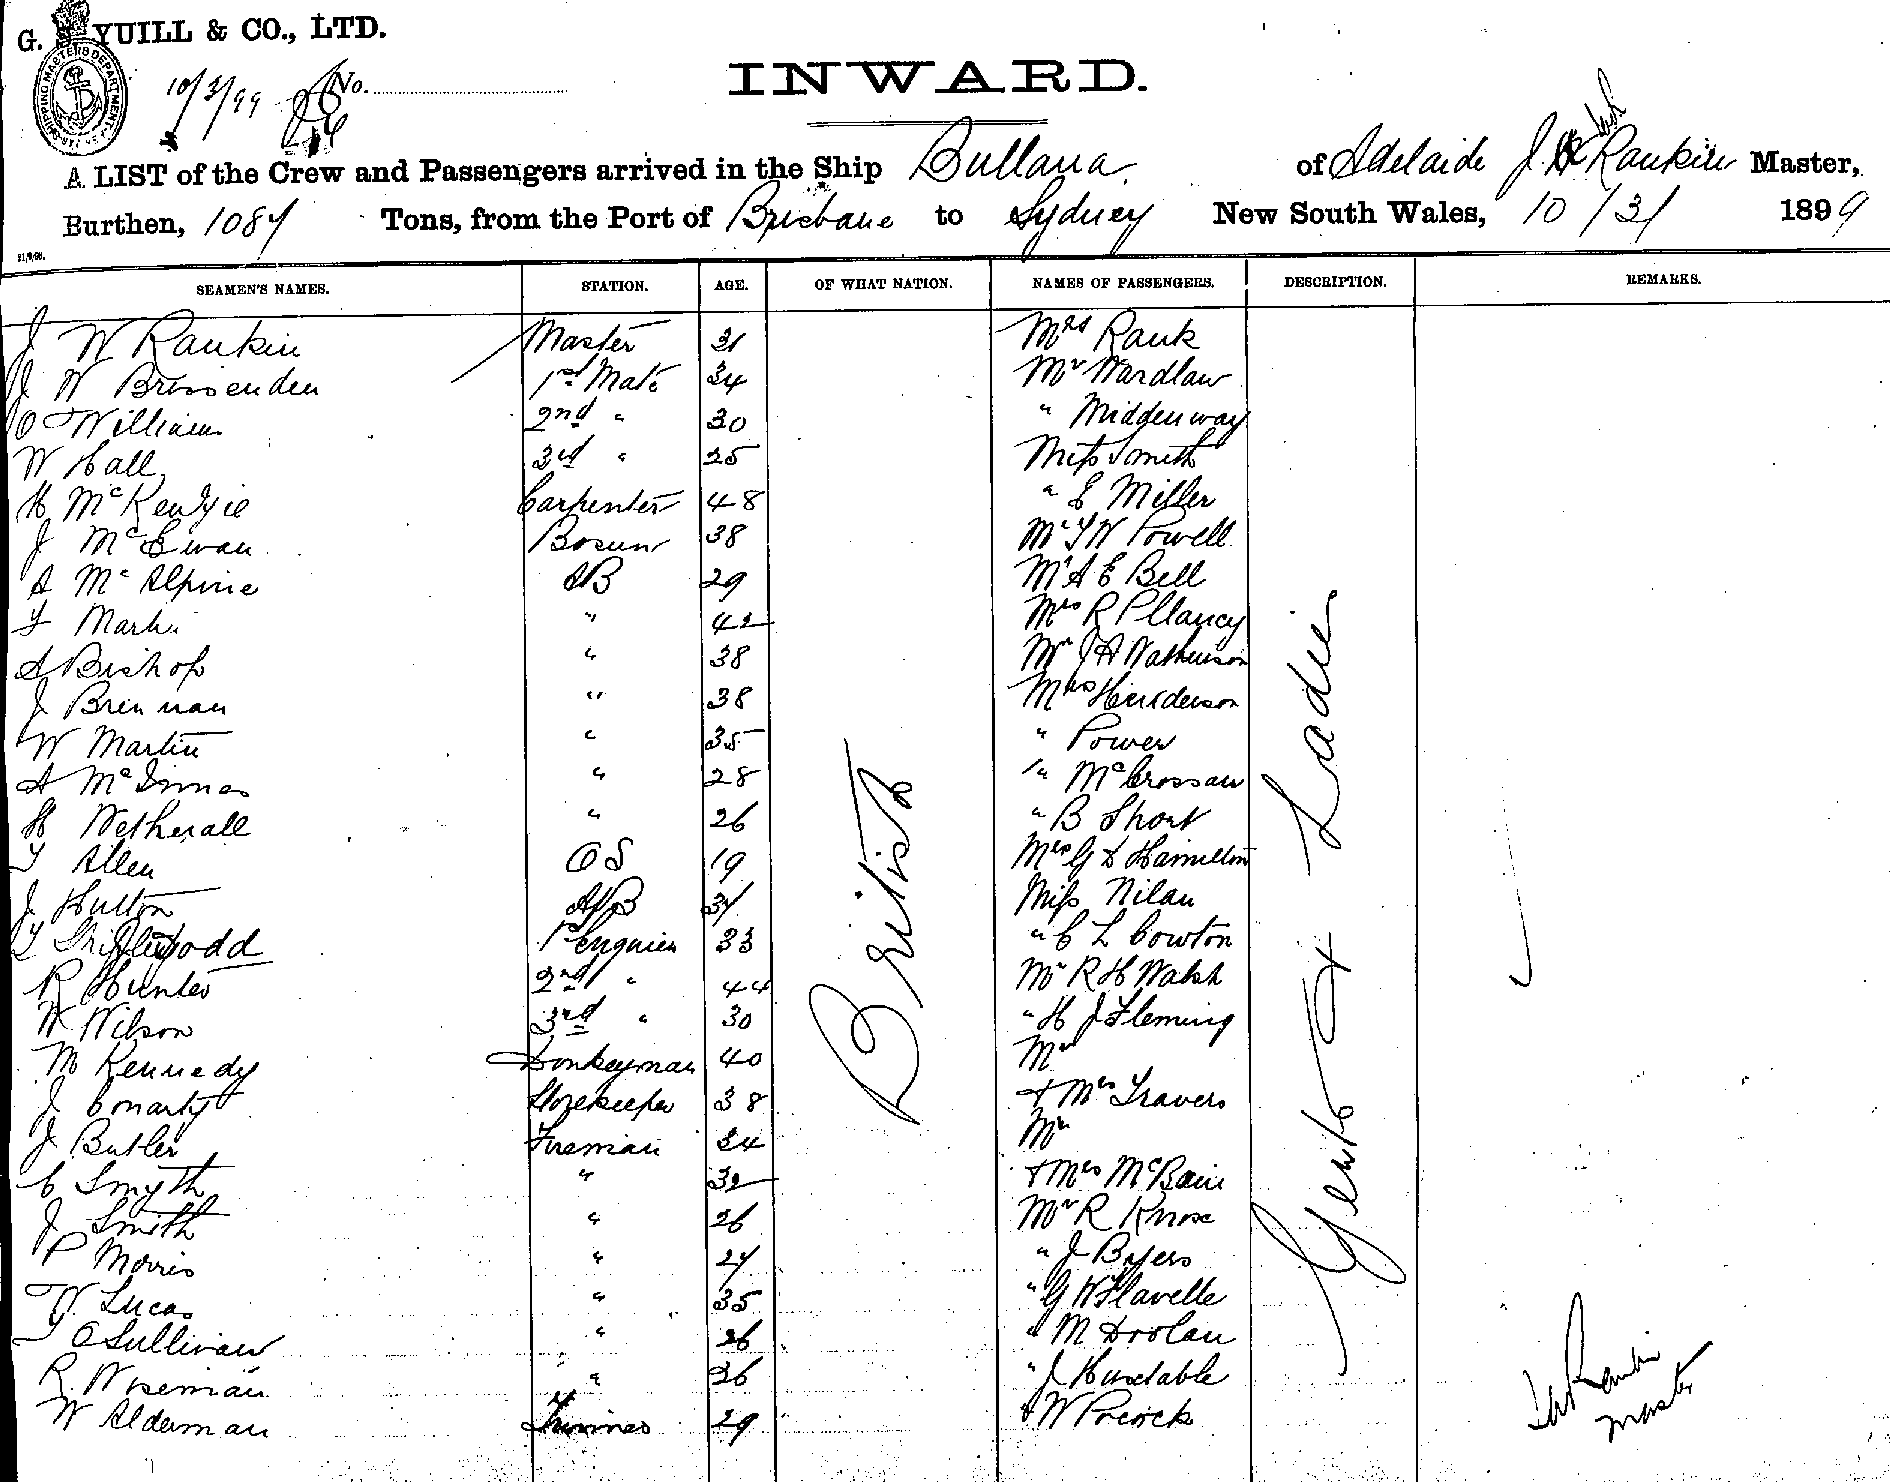 G. S. YUILL & CO., LTD.
SHIPPING MASTERS DEPARTMENT
10/3/99 No.
INWARD.
A LIST of the Crew and Passengers arrived in the Ship Bullarra of Adelaide J. W Rankin Master,
Burthen, 1087 Tons, from the Port of Brisbane to Sydney New South Wales, 10/3/ 1899
SEAMEN'S NAMES. STATION. AGE. OF WHAT NATION. NAMES OF PASSENGERS. DESCRIPTION. REMARKS.
J W Rankin Master 31 Mrs Rank
J W Brissenden 1st Mate 34 Mr Wardlaw
O Williams 2nd " 30 " Middenway
W Hall 3rd " 25 Miss Smith
H McKenzie Carpenter 48 " E Miller
J McEwan Bosun 38 Mr T W Powell
A McAlpine AB 29 Mr A E Bell
T Martin " 42 Mrs R P Clancy
A Bishop " 38 Mr J A Watkinson
J Brennan " 38 Mrs Henderson
W Martin " 35 " Power
A McInnes " 28 " McCrossan
H Wetherall " 26 " B Short
T Allen OS 19 Mrs G D Hamilton
J Hutton AB 31 Miss Nilan
1st Engineer 33 " C L Cowton
R Hunter 2nd " 44 Mr R H Walsh
W Wilson 3rd " 30 " H J Fleming
M Kennedy Donkeyman 40 Mr
J Conarty Storekeeper 38 + Mrs Travers
J Butler Fireman 34 Mr
C Smyth " 32 + Mrs McBain
J Smith " 26 Mr R Knox
P Morris " 27 " J Byers
W Lucas " 35 " G W Flavelle
T O'Sullivan " 26 " M Doolan
R Wiseman " 26 " J Huxtable
W Alderman Trimmer 29 " W Pocock
British
Gents & Ladies
J W Rankin
Master